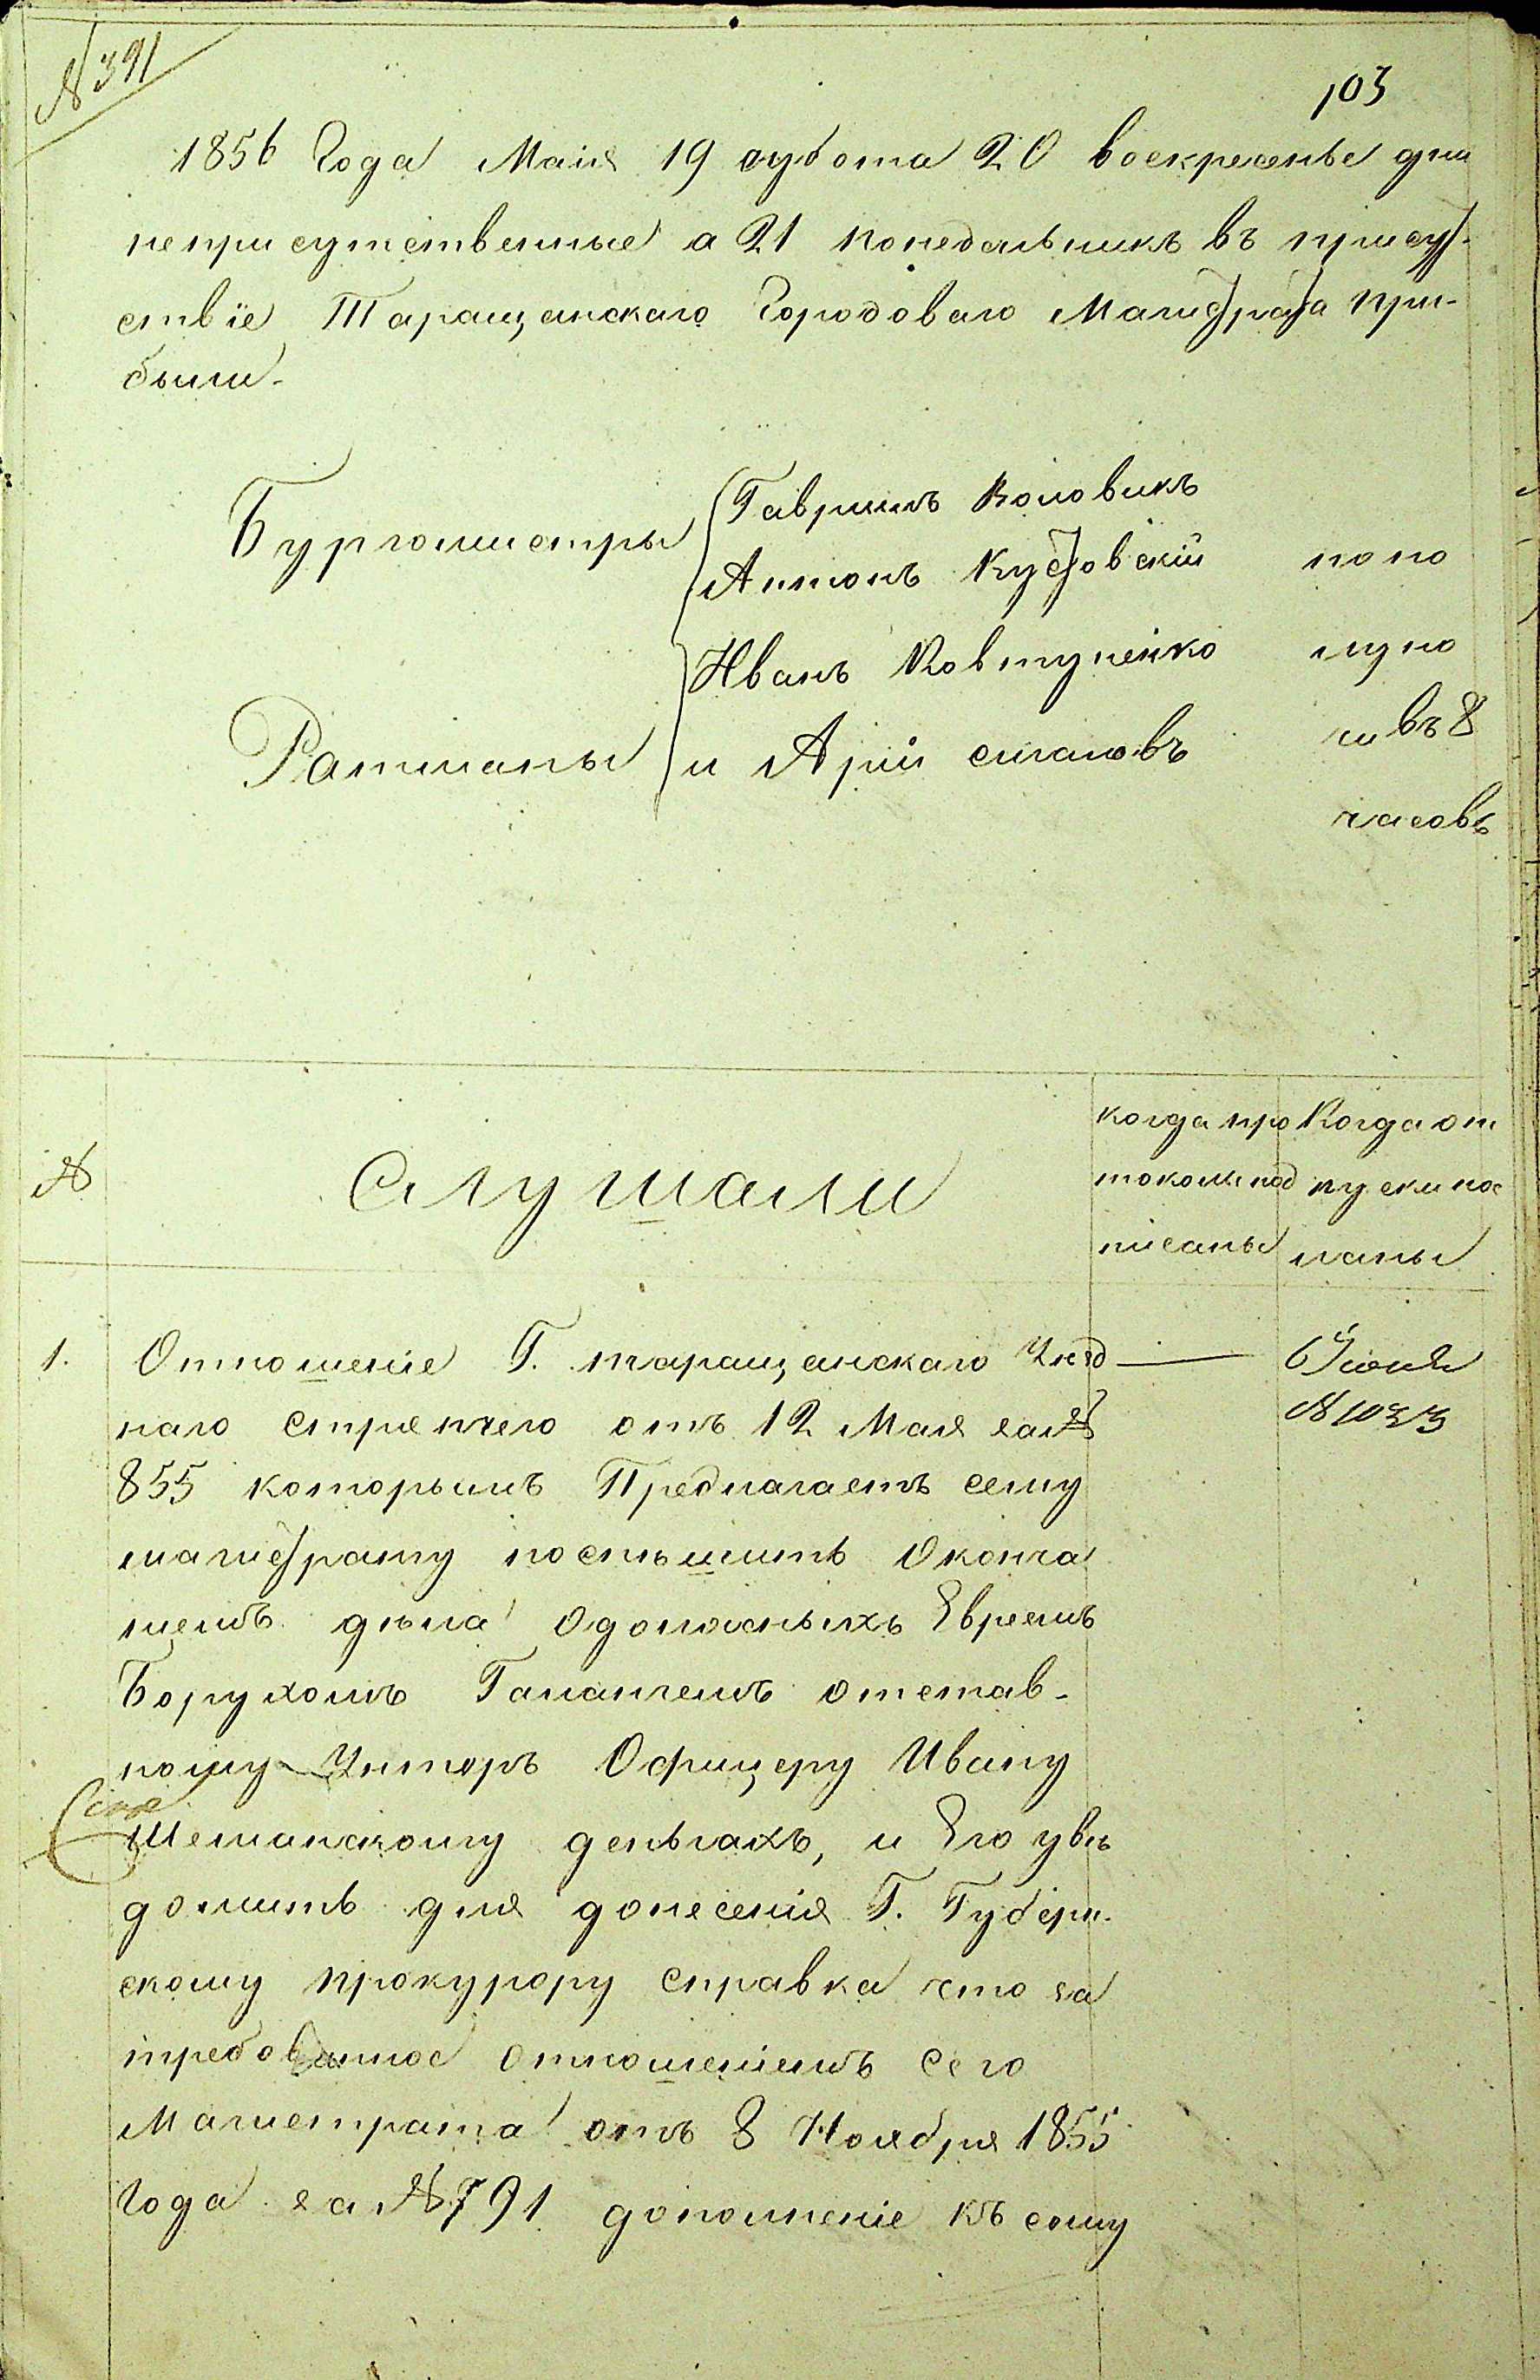 № 391
103
1856 Года Маия 19 субота 20 воскресенье дни
неприсутственные а 21 понедельникъ въ присут-
ствіе Таращанскаго Городоваго Магистрата при-
были.
Бургомистры
Гавриилъ Воловикъ
Антонъ Кустовскій
Иванъ Ковтуненко
Ратманы
и Арій
по по
лу но
чи въ 8
часовъ
№
Слушали
когда про
токолы под
писаны
Когда от
пуски пос
ланы
1.
Отношеніе Г. таращанскаго Уезд
наго стряпчего отъ 12 Мая за №
855 которымъ Предлагаетъ сему
магистрату поспѣшить оконча
ніемъ дѣла одолженыхъ Евреемъ
Борухомъ отстав-
ному Унтеръ Офицеру Ивану
Шеманскому деньгахъ, и Его увѣ
домить для донесенія Г. Губерн-
скому прокурору справка что за
требованное отношеніемъ сего
Магистрата отъ 8 Ноября 1855
Года за № 791 дополненіе къ сему
6 Іюня
№ 1033